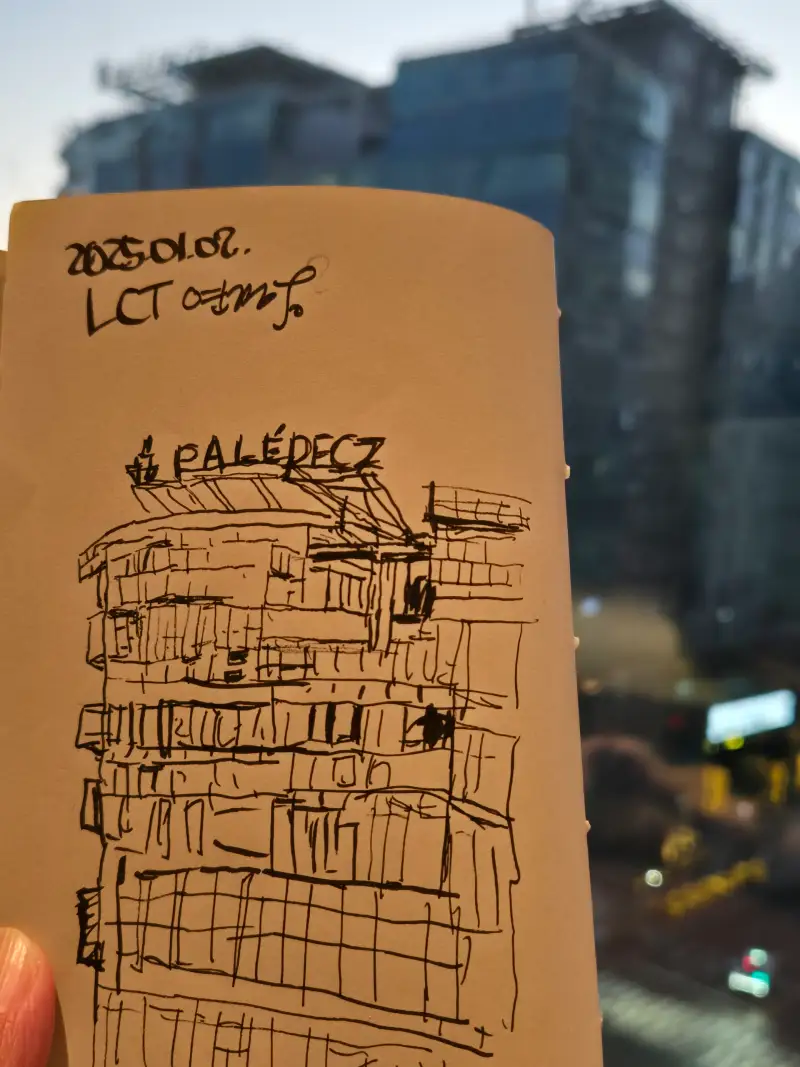 2025.01.02.
LCT
PALÉDECZ